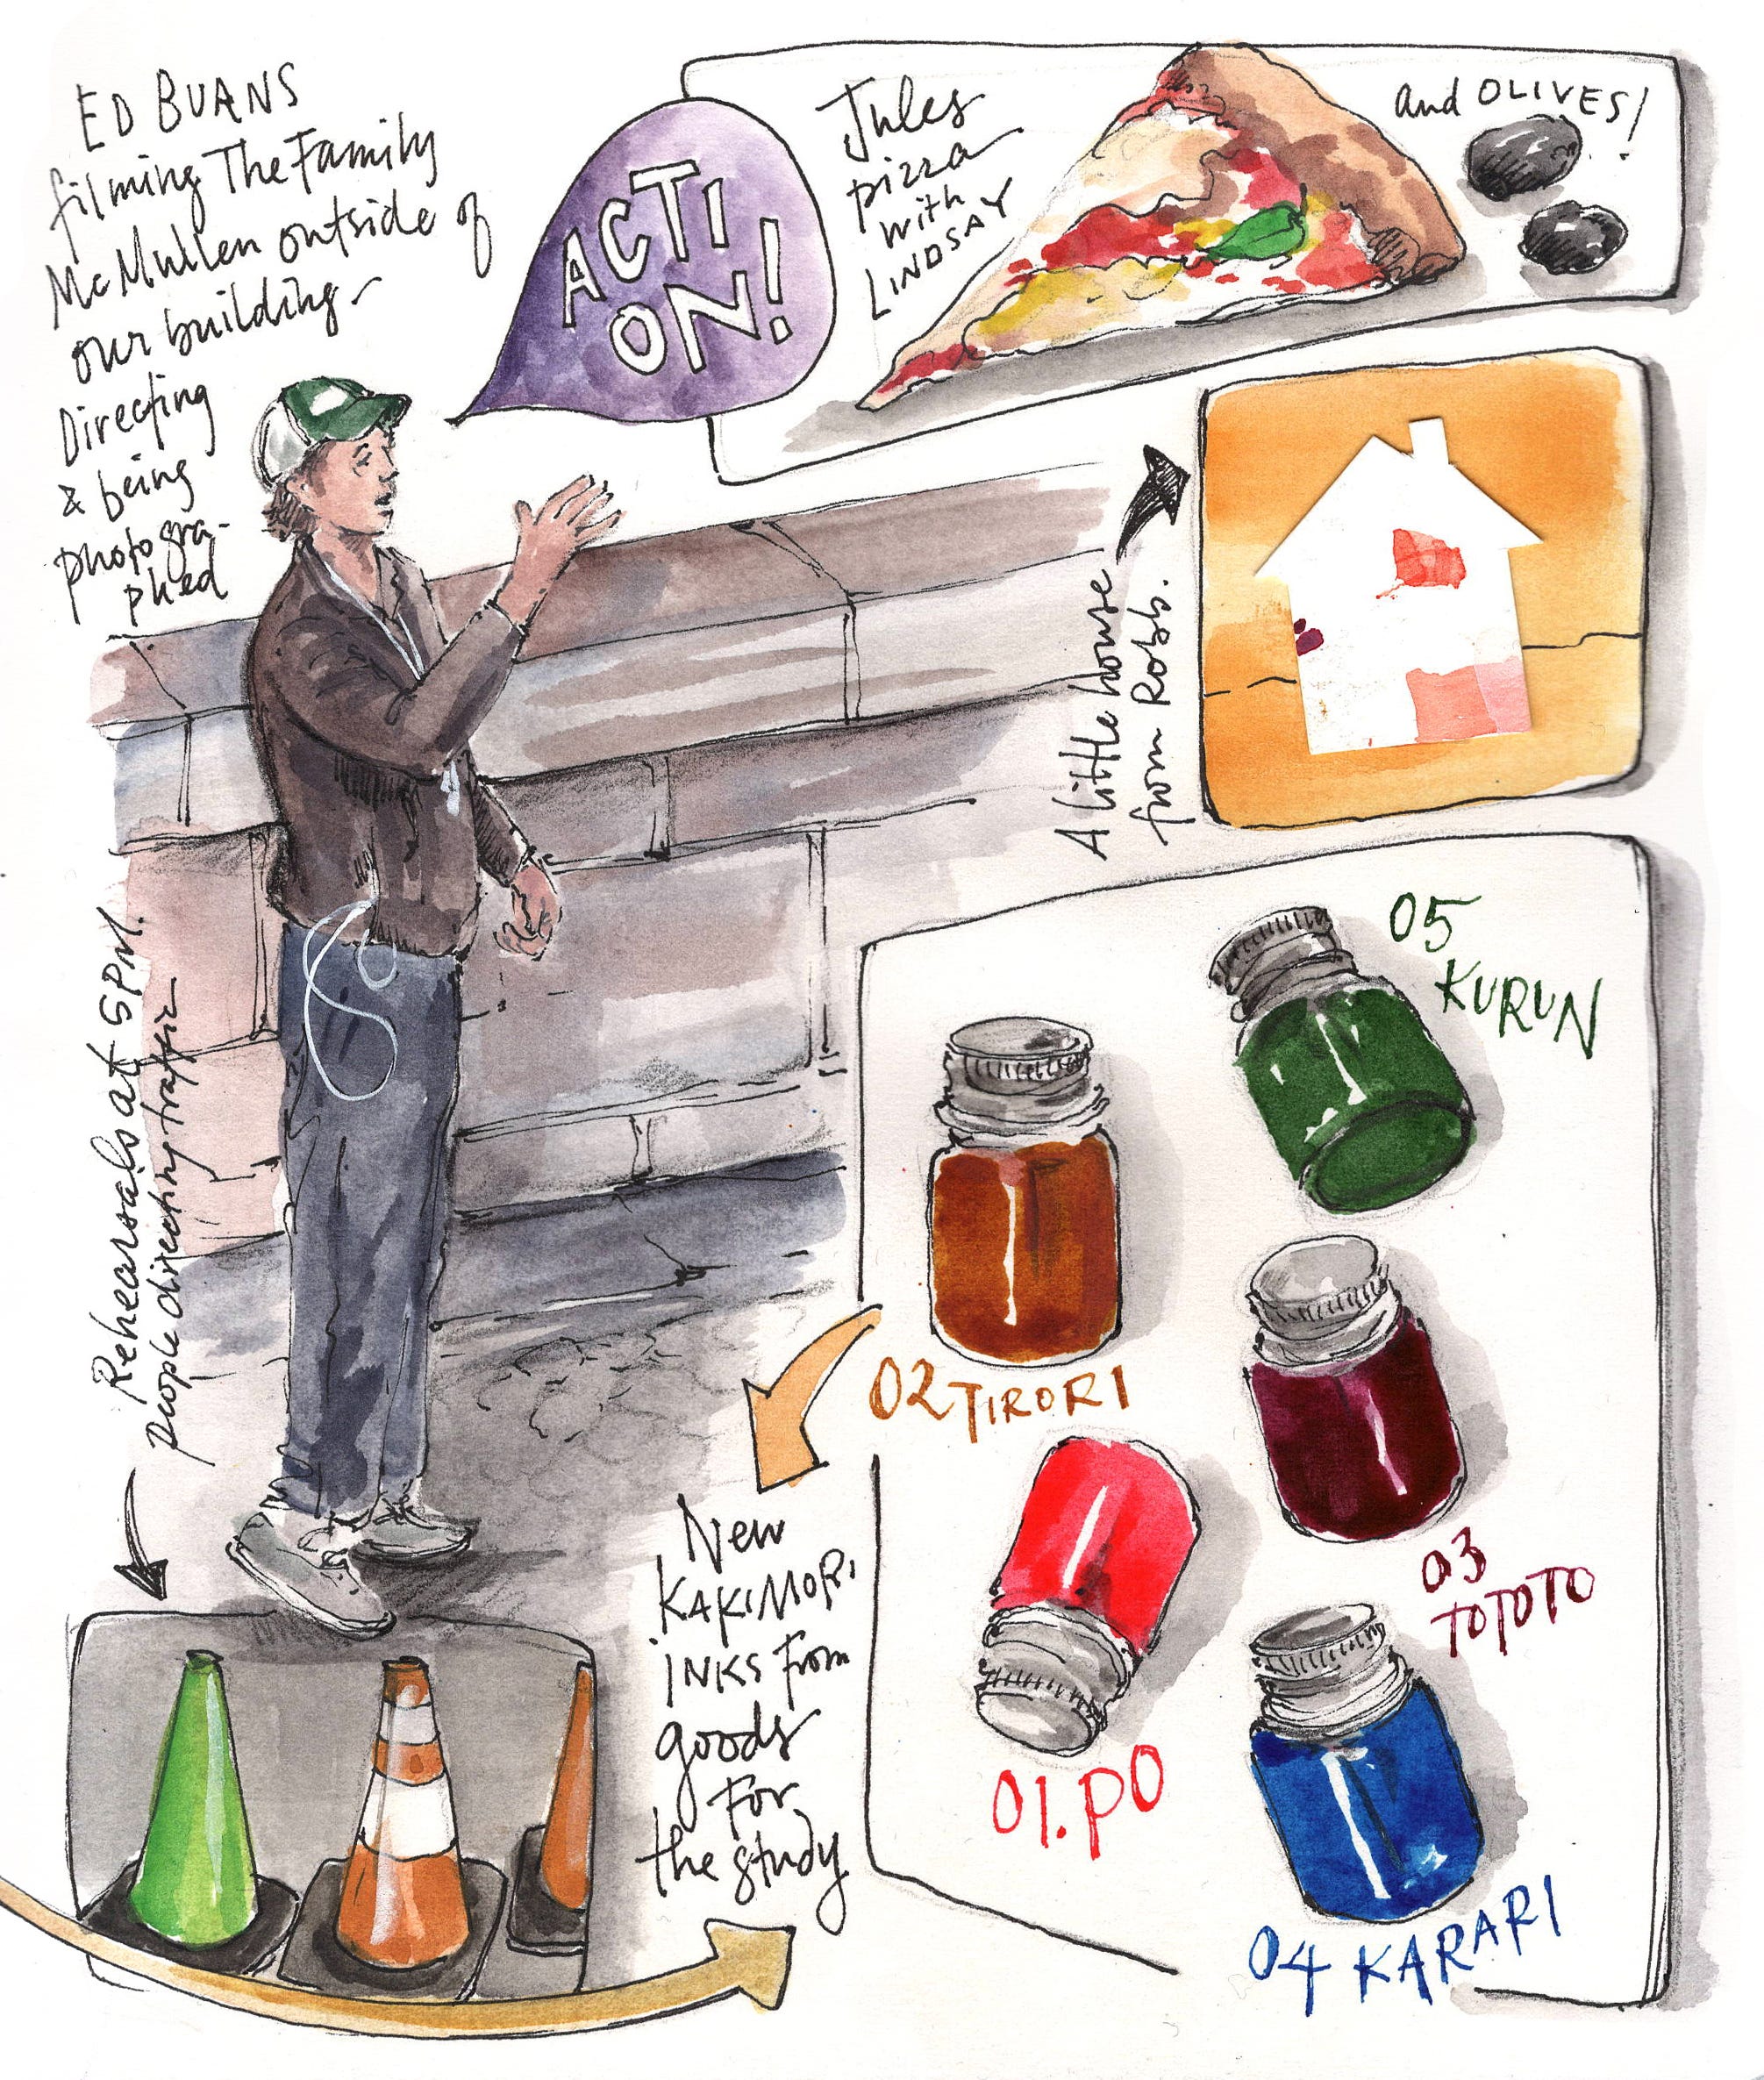 ED BUANS
filming The Family
McMullen outside of
our building-
Directing
& being
photogra-
phed
ACTI
ON!
Jules
pizza
with
LINDSAY
and OLIVES!
A little house
from Robb.
Rehearsals at 5PM.
people directing traffic
New
KAKIMORI
INKS from
goods
For
the study
05
KURUN
02 TIRORI
03
TOTOTO
01. PO
04 KARARI